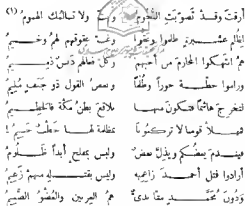 أرقت وقد تصوبت النجوم وبت ولا تسالمك الهموم (١)
لظلم عشيرة ظلموا وعقوا وغب عقوقهم لهم وخيم
هم انتهكوا المحارم من أخيهم وكل فعالهم دنس ذميم
وراموا خطة جورا وظلما وبعض القول ذو جنف مليم
لتخرج هاشما فتكون منها بلاقع بطن مكة فالحطيم
فمهلا قومنا لا تركبونا بمظلمة لها خطب جسيم
فيندم بعضكم ويذل بعض وليس بمفلح أبدا ظلوم
أرادوا قتل أحمد زاعميه وليس بقتله منهم زعيم
ودون محمد منا ندي هم العرنين والعضو الصميم